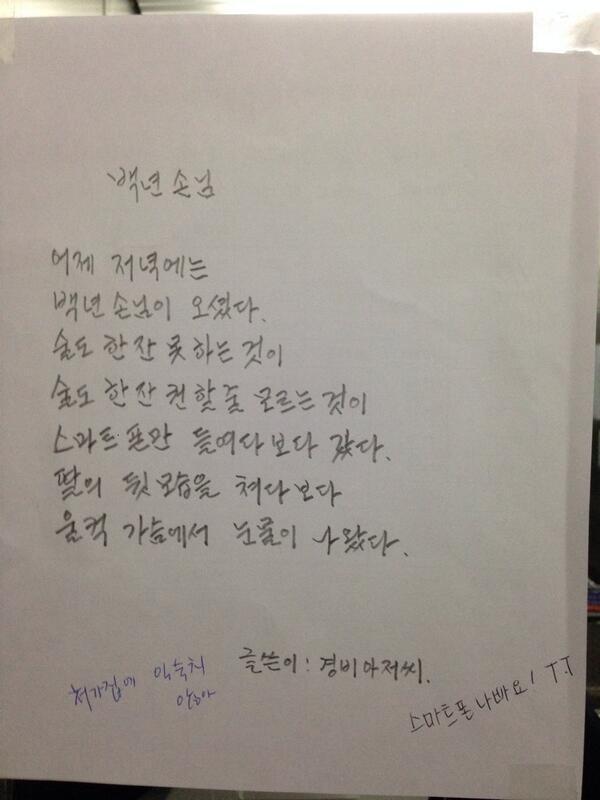 백년 손님
어제 저녁에는
백년 손님이 오셨다.
술도 한잔 못하는 것이
술도 한잔 권할줄 모르는 것이
스마트폰만 들여다 보다 갔다.
딸의 뒷모습을 쳐다보다
울컥 가슴에서 눈물이 나왔다.
글쓴이: 경비아저씨.
처가집에 익숙치
않아
스마트폰 나빠요! T.T